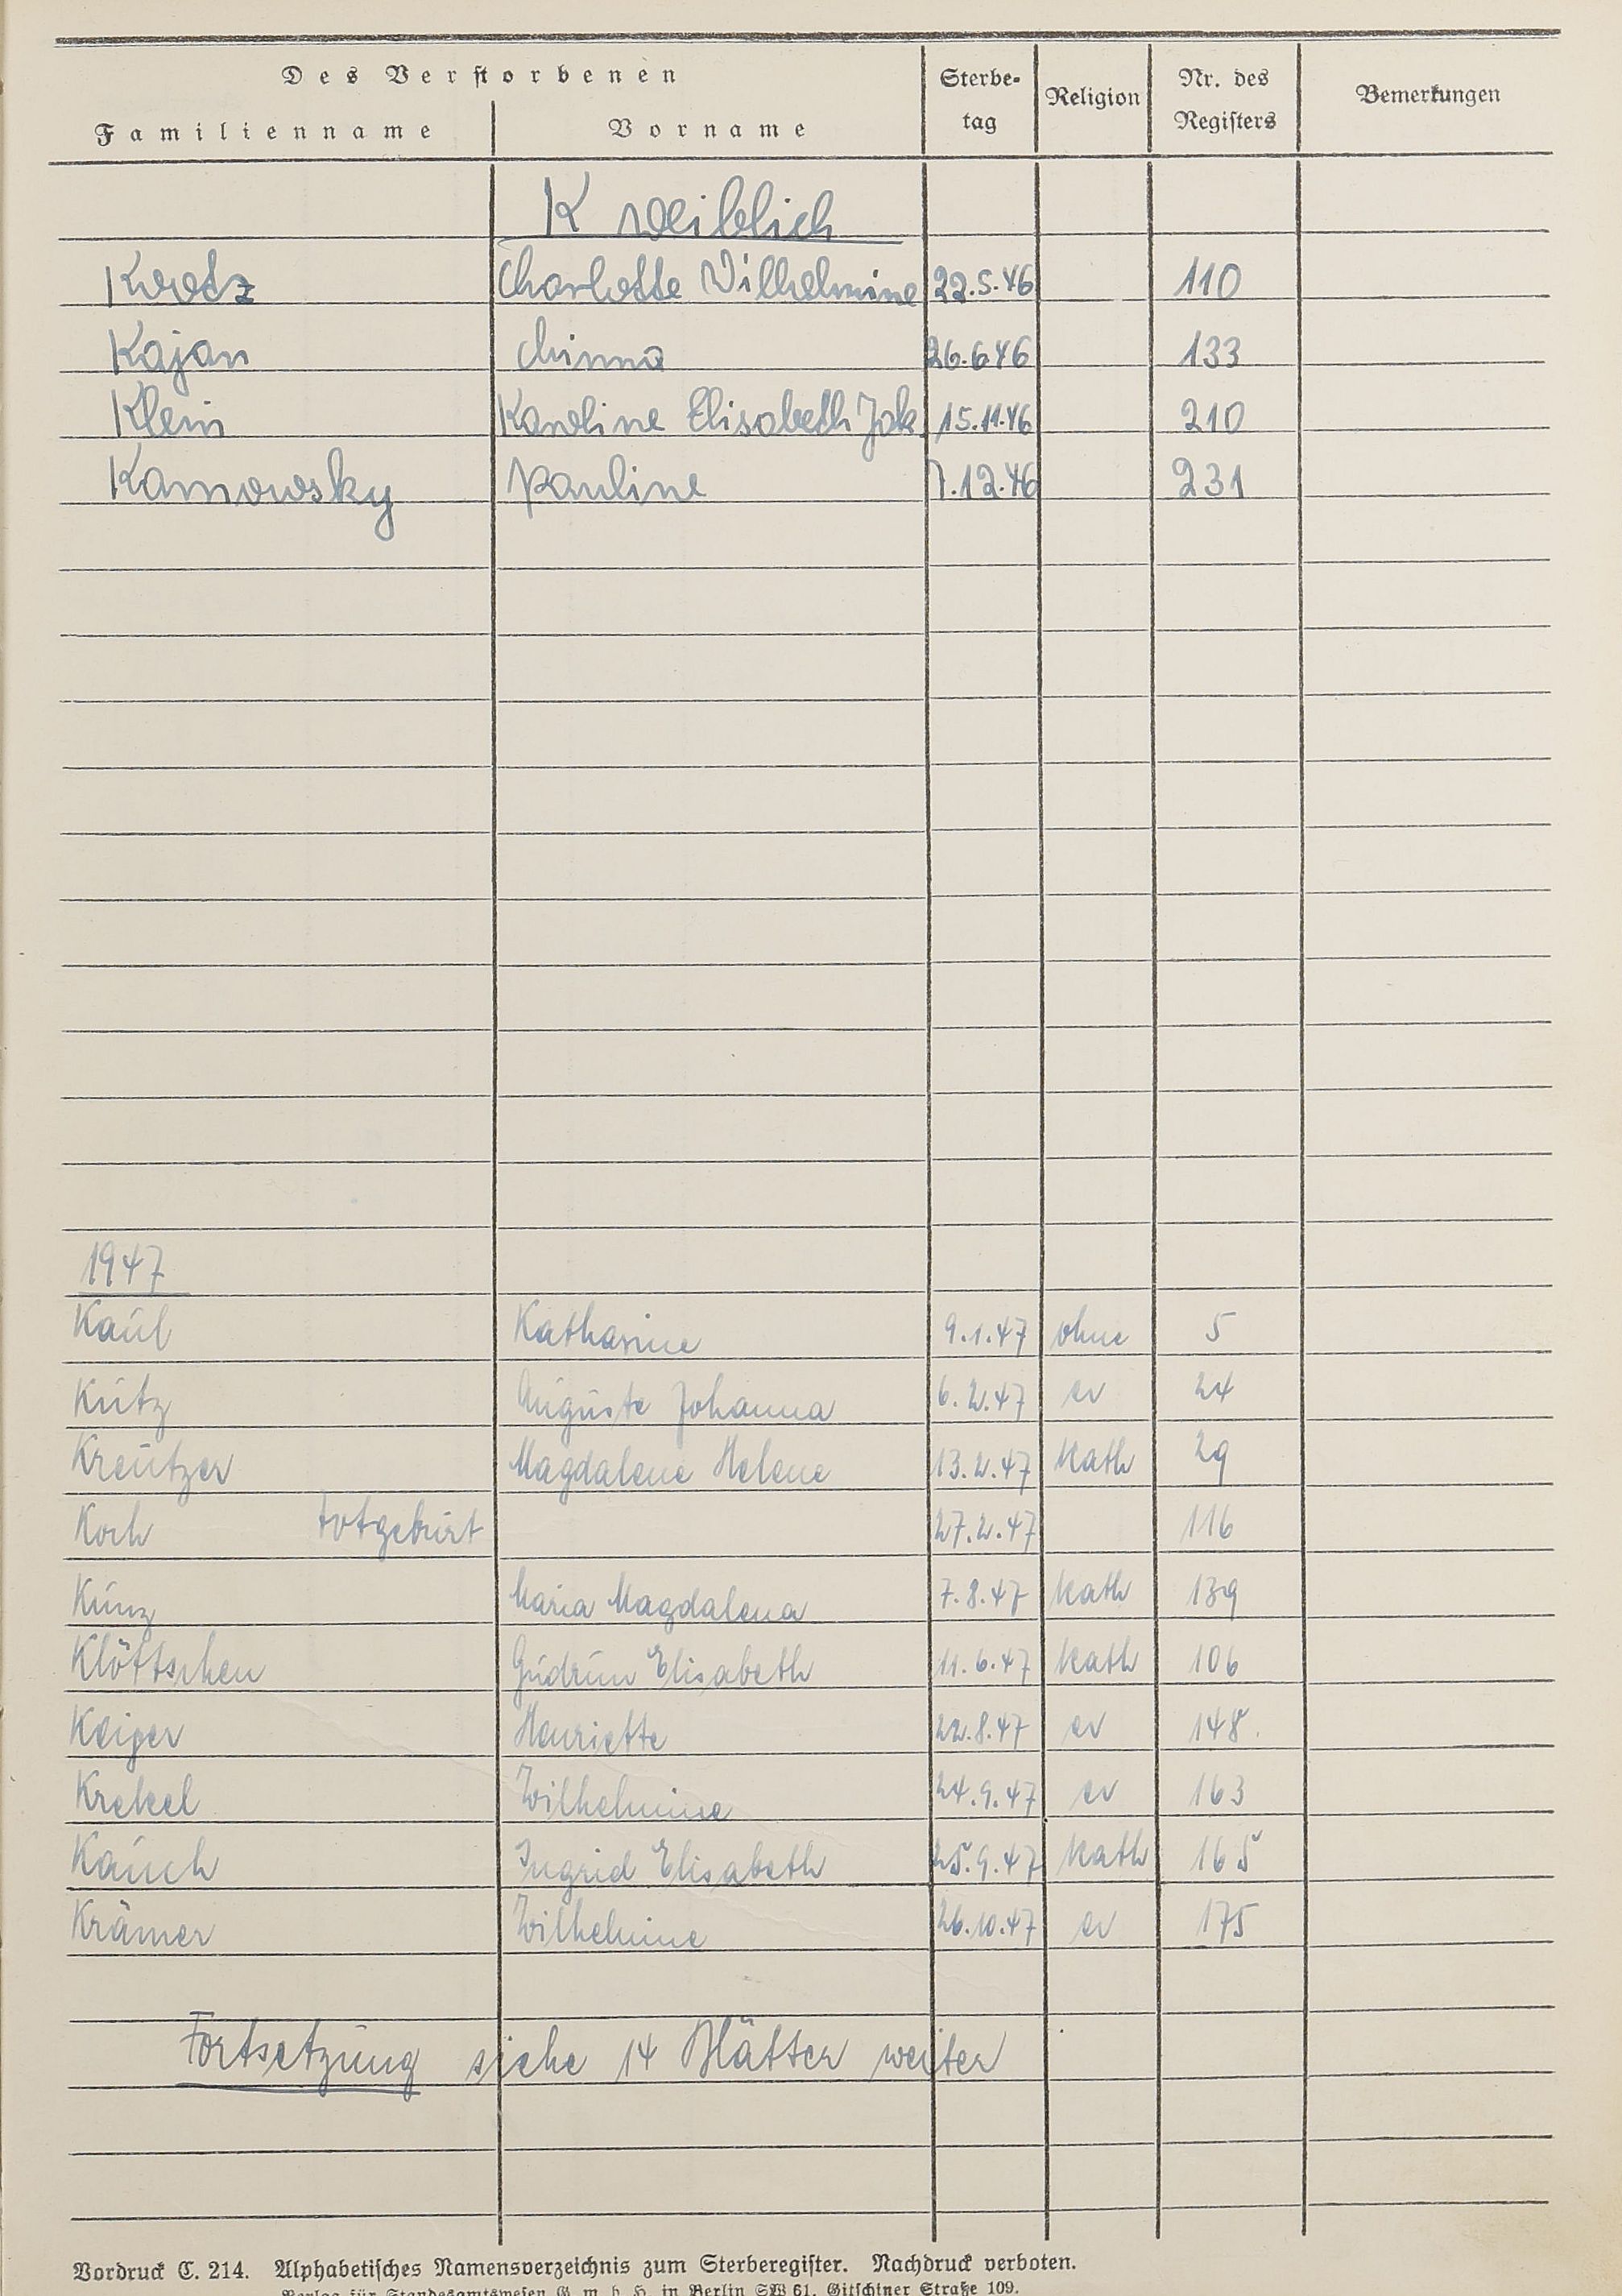 Des Verstorbenen
Familienname Vorname Sterbetag Religion Nr. des Registers Bemerkungen
K weiblich
Krotz Charlotte Wilhelmine 22.5.46 110
Kajan 26.6.46 133
Klein Karoline Elisabeth Jak. 15.11.46 210
Kamowsky Pauline 7.12.46 231
1947
Kaul Katharine 9.1.47 ohne 5
Kutz Auguste Johanna 6.2.47 ev 24
Kreutzer Magdalene Helene 13.2.47 Kath 29
Koch totgeburt 27.2.47 116
Kunz Maria Magdalena 7.8.47 Kath 139
Klöttschen Gudrun Elisabeth 11.6.47 Kath 106
Keiper Henriette 22.8.47 ev 148.
Krekel Wilhelmine 24.9.47 ev 163
Kauch Ingrid Elisabeth 25.9.47 Kath 165
Krämer Wilhelmine 26.10.47 ev 175
Fortsetzung siehe 14 Blätter weiter
Vordruck C. 214. Alphabetisches Namensverzeichnis zum Sterberegister. Nachdruck verboten.
Verlag für Standesamtswesen G. m. b. H. in Berlin SW 61, Gitschiner Straße 109.